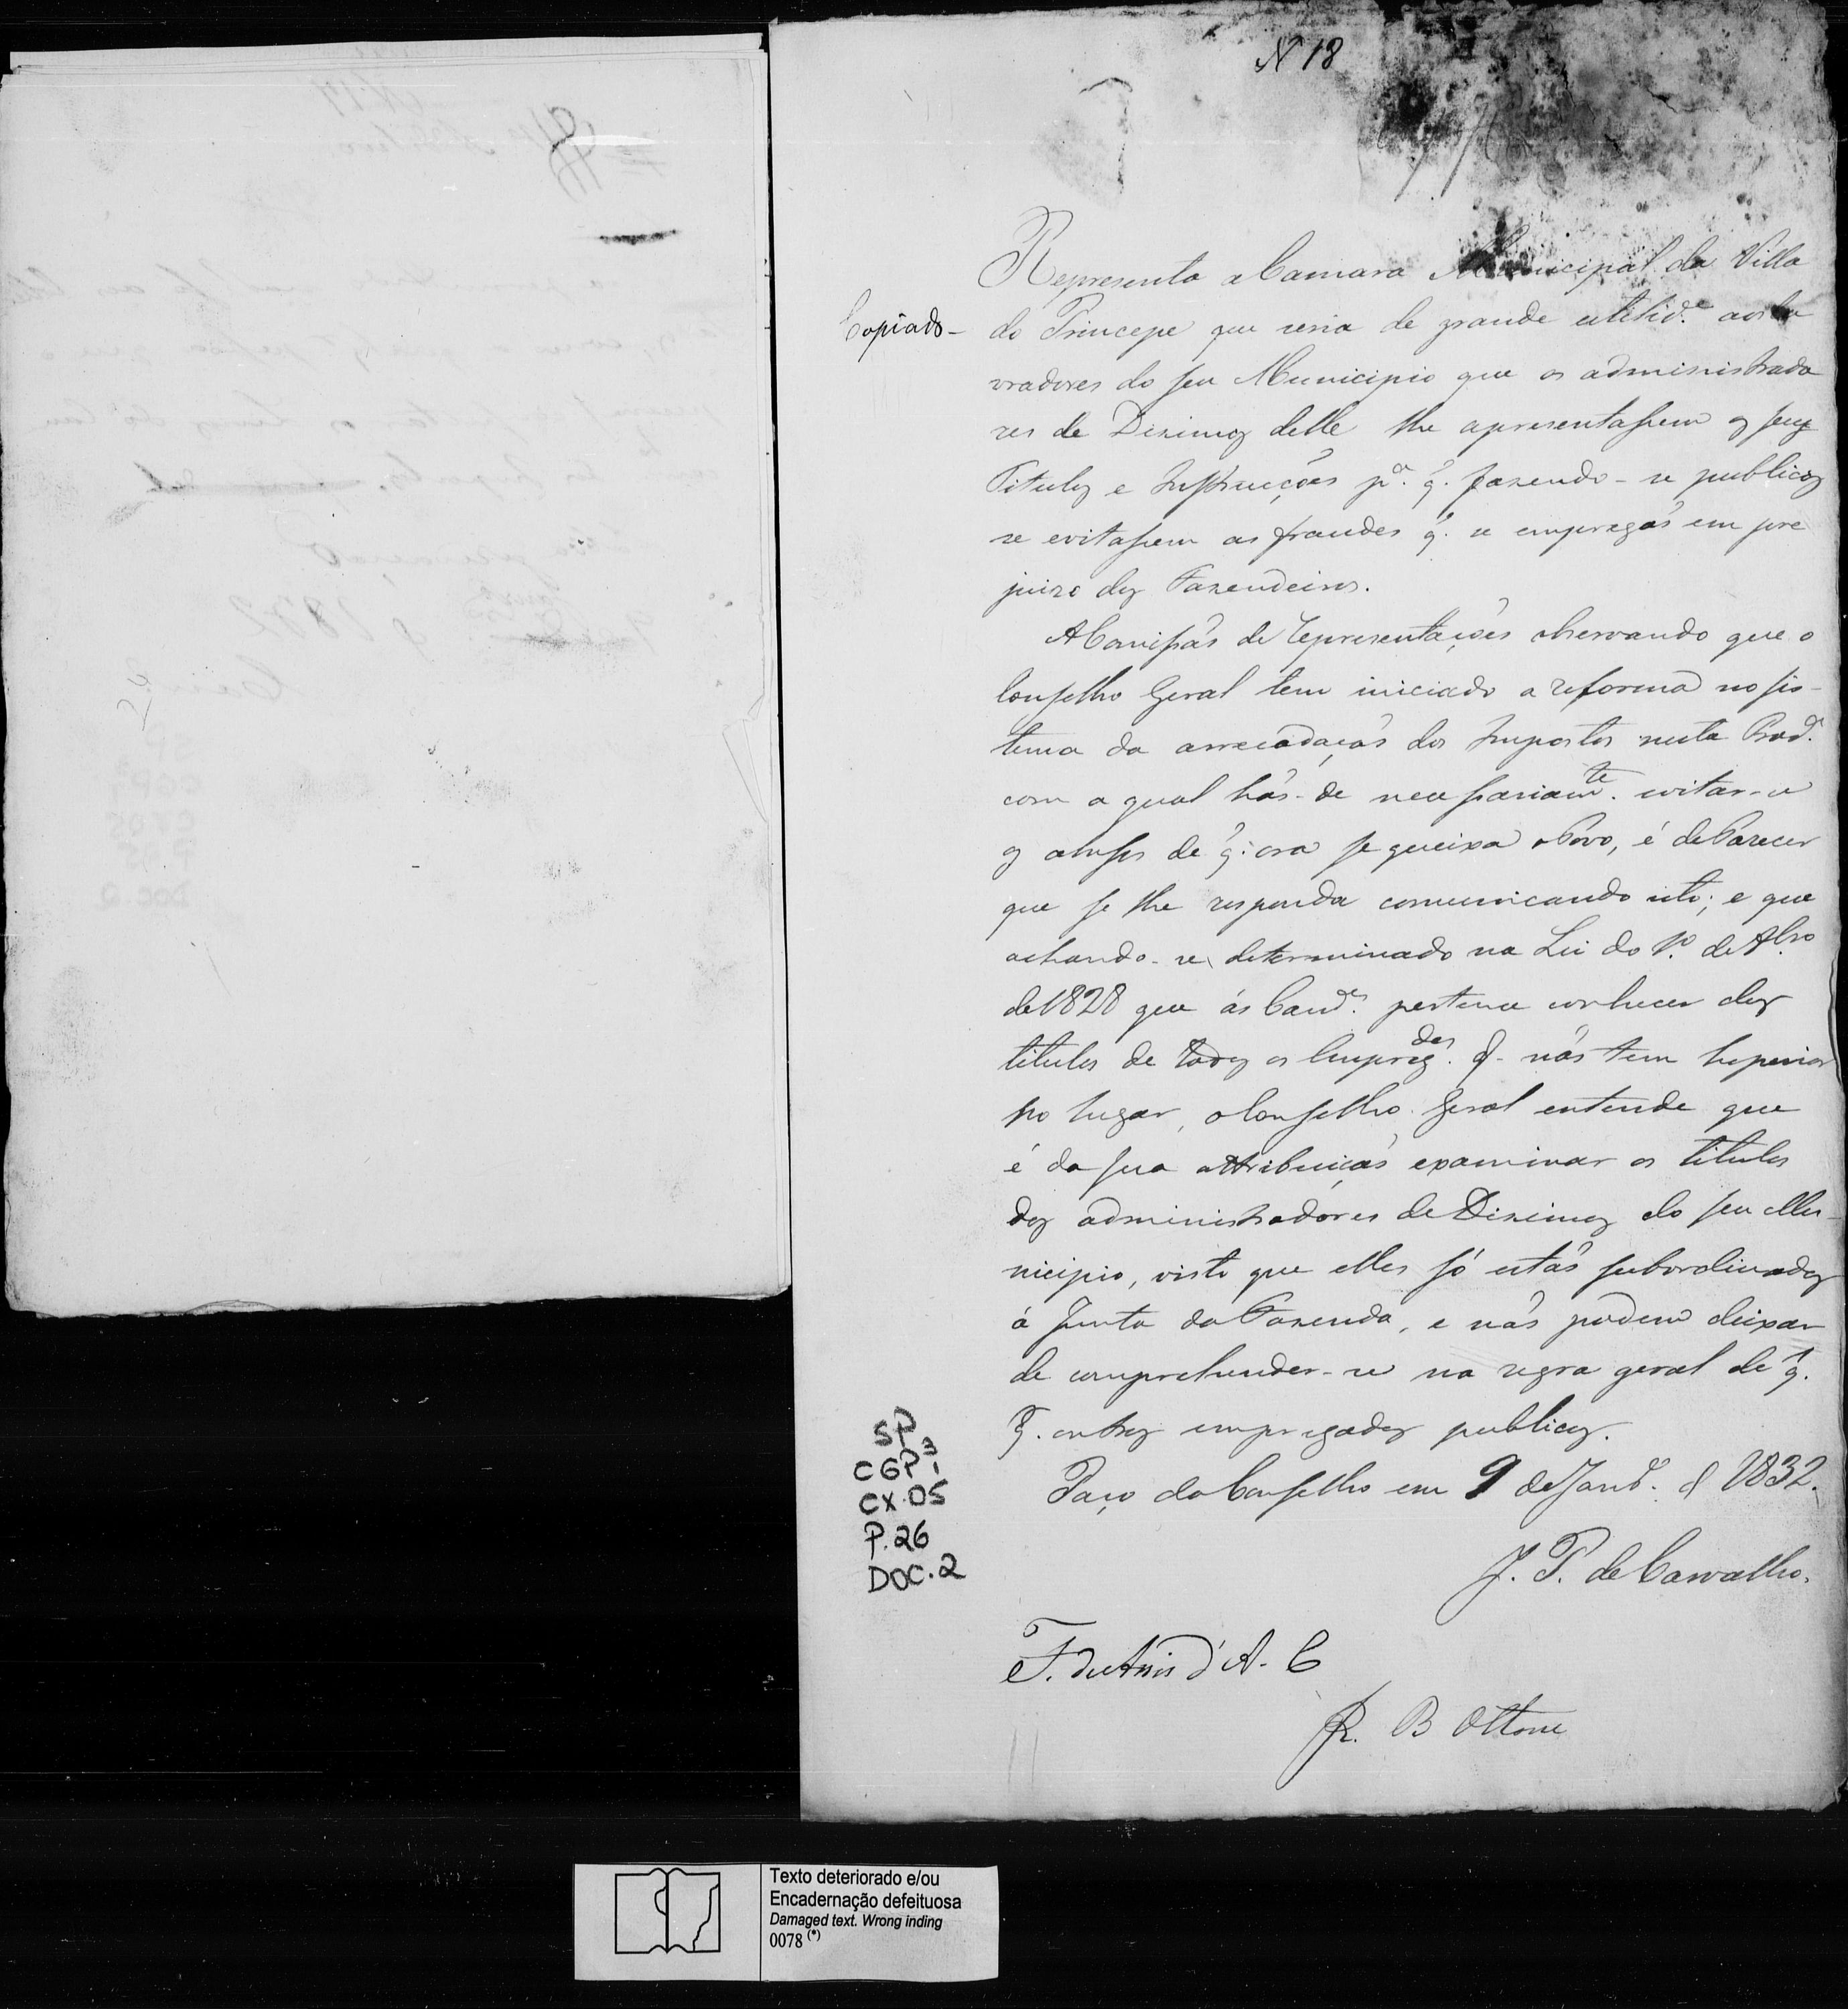 N 18
Representa a Camara Municipal da Villa
Copiado -
do Princepe que seria de grande utilid.e aos la
vradores do seu Municipio que os administrado
res de Dizimos delle lhe apresentassem os seus
Titulos e Instrucções p.a q. fazendo-se publicos
se evitassem as fraudes q. se empregaõ em pre
juizo dos Fazendeiros.
A Comissaõ de Representações observando que o
Conselho Geral tem iniciado a reforma no sis-
tema da arrecadaçaõ dos Impostos nesta Prov.a
com a qual haõ-de necessariam.te evitar-se
os abusos de q. ora se queixa o Povo, é de Parecer
que se lhe responda comunicando isto; e que
achando-se determinado na Lei do 1.o de Obro
de 1828 que ás Cam.es pertence conhecer dos
titulos de todos os Empreg.dos q. naõ tem Superior
no lugar, o Conselho Geral entende que
é da sua attribuiçaõ examinar os titulos
dos administradores de Dizimos do seu Mu-
nicipio, visto que elles só estaõ subordinados
á Junta da Fazenda, e naõ podem deixar
de comprehender-se na regra geral de q.
q. outros empregados publicos.
Paço do Conselho em 9 de Janr.o d 1832.
J. P. de Carvalho.
F. de Assis d'A. C
R. B Ottoni
SP
CGP 3
1
CX.05
P.26
DOC.2
Texto deteriorado e/ou
Encadernação defeituosa
Damaged text. Wrong inding
0078 (*)